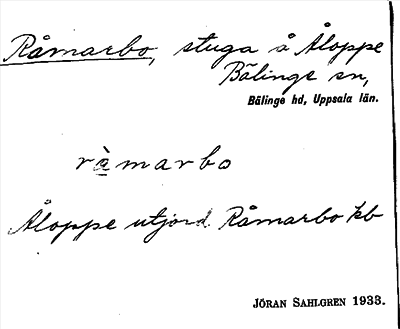 Råmarbo, stuga å Åloppe
Bälinge sn,
Bälinge hd, Uppsala län.
ràmarbo
Åloppe utjord Råmarbo kb
JÖRAN SAHLGREN 1933.